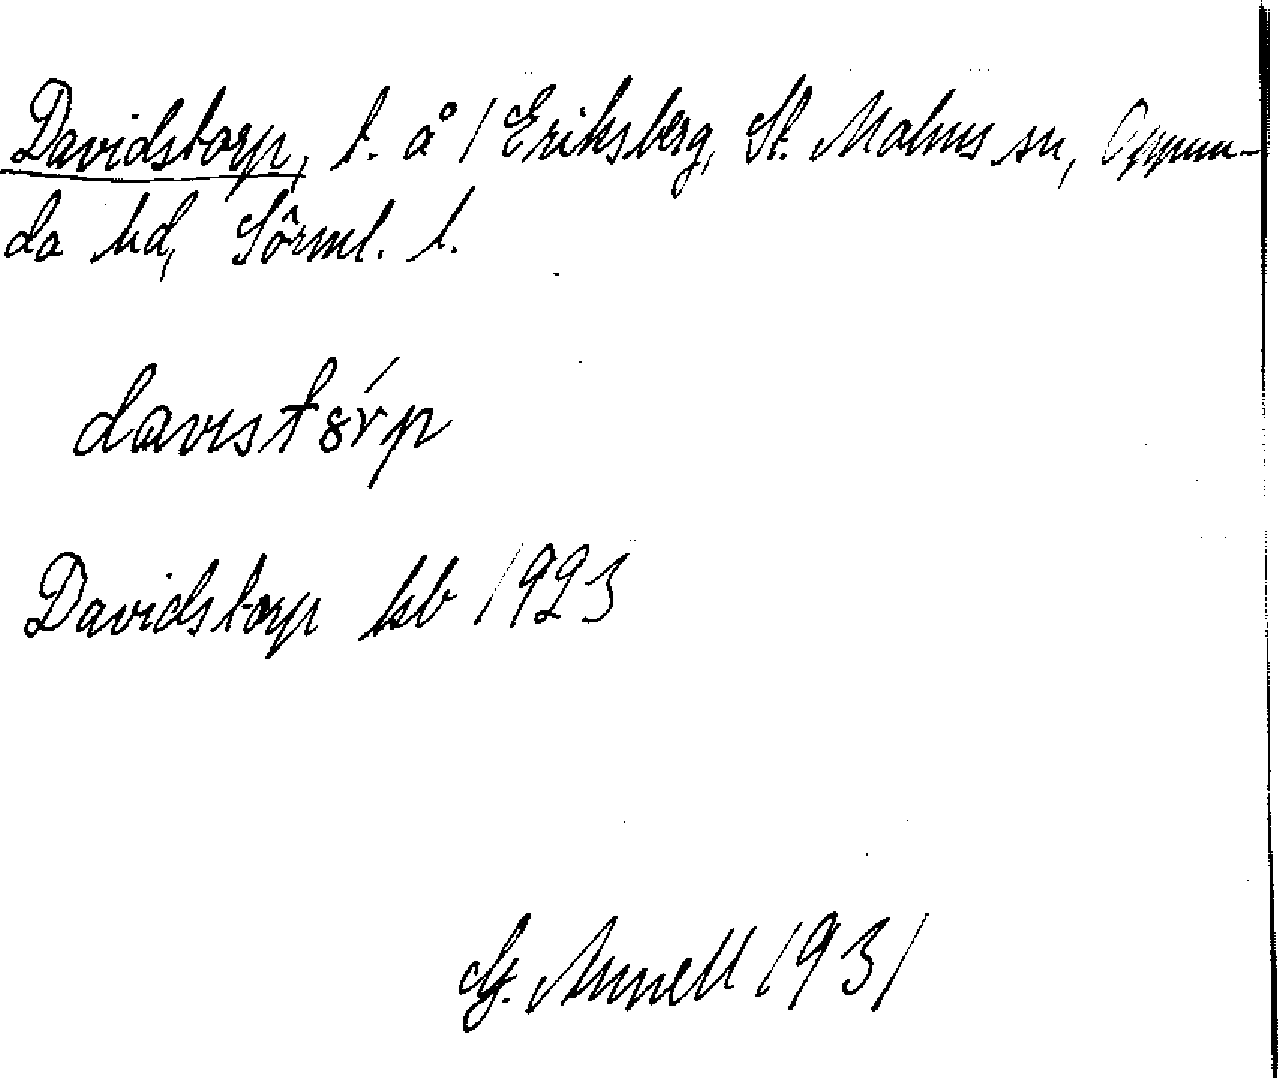 Davidstorp, t. å 1 Eriksberg, St. Malms sn, Oppun-
da hd, Sörml. l.
davistórp
Davidstorp kb 1923
G. Annell 1931